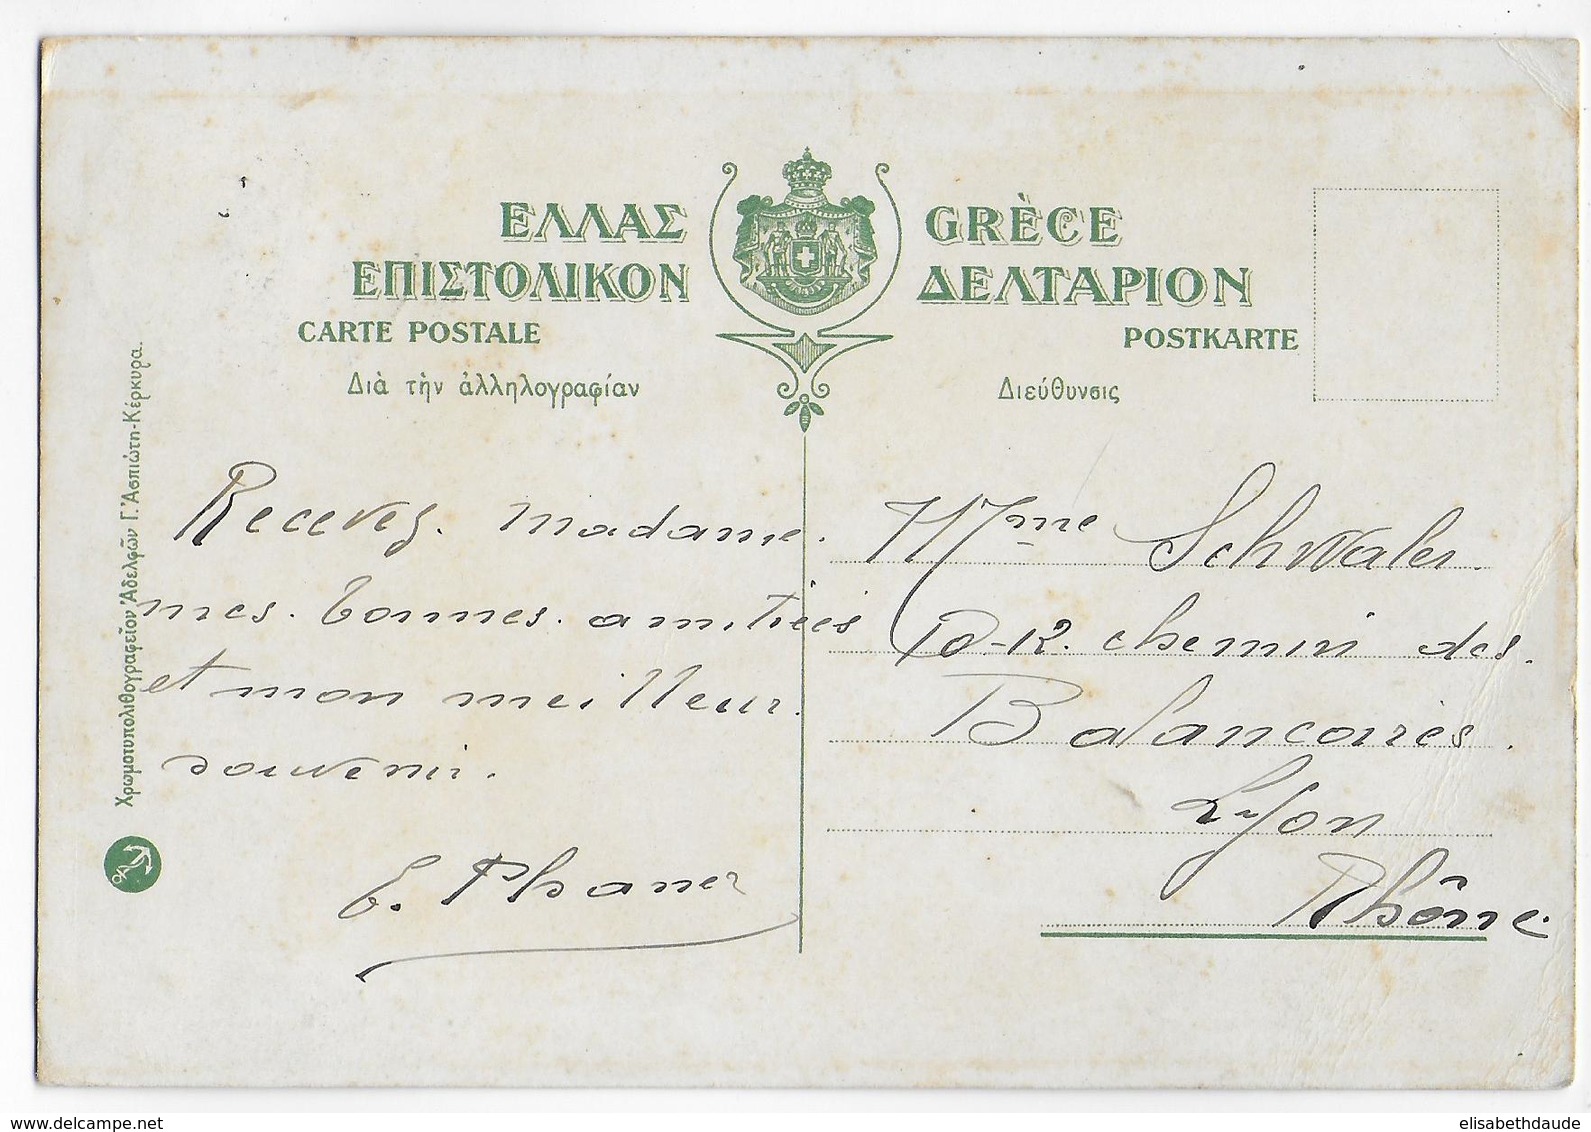 ΕΛΛΑΣ GRÈCE
ΕΠΙΣΤΟΛΙΚΟΝ ΔΕΛΤΑΡΙΟΝ
CARTE POSTALE POSTKARTE
Διὰ τὴν ἀλληλογραφίαν
Διεύθυνσις
Χρωμοτυπολιθογραφεῖον Ἀδελφῶν Γ. Ἀσπιώτη-Κέρκυρα.
Recevez. Madame.
mes. bonnes. amitiés
et mon meilleur.
souvenir.
Mme Schwaler.
10-12. chemin des.
Balancoires.
Lyon
Rhône.
www.delcampe.net
elisabethdaude